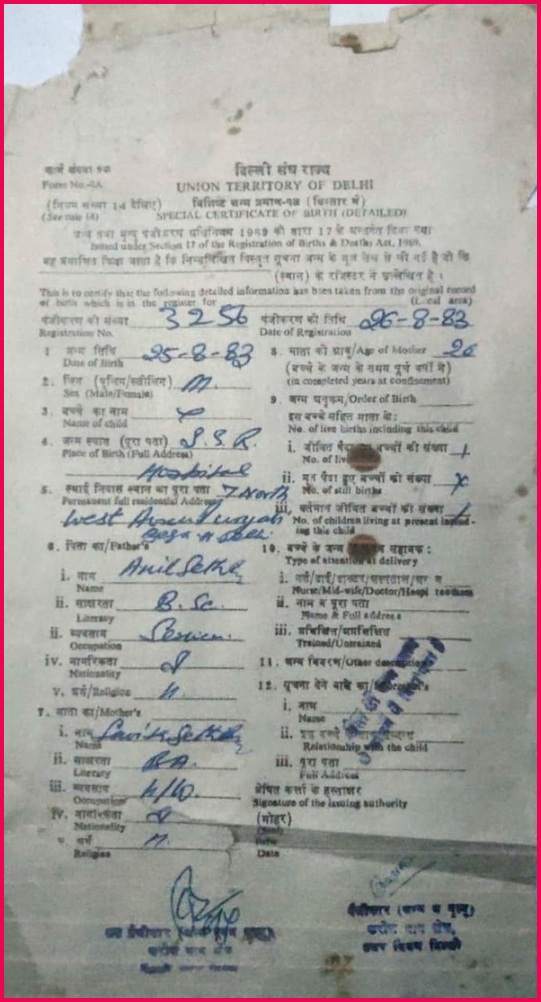 फार्म संख्या 9क
Form No.-9A
दिल्ली संघ राज्य
UNION TERRITORY OF DELHI
(नियम संख्या 14 देखिए)
(See rule 14)
विशिष्ट जन्म प्रमाण-पत्र (विस्तार में)
SPECIAL CERTIFICATE OF BIRTH (DETAILED)
जन्म तथा मृत्यु पंजीकरण अधिनियम 1969 की धारा 17 के अन्तर्गत दिया गया
Issued under Section 17 of the Registration of Births & Deaths Act, 1969.
यह प्रमाणित किया जाता है कि निम्नलिखित विस्तृत सूचना जन्म के मूल लेख से ली गई है जो कि
(स्थान) के रजिस्टर में उल्लेखित है ।
This is to certify that the following detailed information has been taken from the original record
of birth which is in the register for (Local area)
पंजीकरण की संख्या 3256
Registration No.
पंजीकरण की तिथि 26-8-83
Date of Registration
1. जन्म तिथि 25-8-83
Date of Birth
2. लिंग (पुल्लिंग/स्त्रीलिंग) M.
Sex (Male/Female)
3. बच्चे का नाम
Name of child
4. जन्म स्थान (पूरा पता)
Place of Birth (Full Address)
Hospital
5. स्थाई निवास स्थान का पूरा पता 7 North
Permanent full residential Address
West Avenue Punjabi
Bagh N Delhi
6. पिता का/Father's
i. नाम Anil Sethi
Name
ii. साक्षरता B.Sc.
Literacy
iii. व्यवसाय Service.
Occupation
iv. नागरिकता I
Nationality
v. धर्म/Religion H.
7. माता का/Mother's
i. नाम Sethi
Name
ii. साक्षरता B.A.
Literacy
iii. व्यवसाय H/W.
Occupation
iv. नागरिकता I
Nationality
v. धर्म H.
Religion
8. माता की आयु/Age of Mother
(बच्चे के जन्म के समय पूर्ण वर्षों में)
(in completed years at confinement)
9. जन्म अनुक्रम/Order of Birth
इस बच्चे सहित माता के:
No. of live births including this child
i. जीवित पैदा हुए बच्चों की संख्या 1
No. of live
ii. मृत पैदा हुए बच्चों की संख्या x
No. of still births
iii. वर्तमान जीवित बच्चों की संख्या 1
No. of children living at present includ-
ing this child
10. बच्चे के जन्म में सहायक :
Type of attention at delivery
i. नर्स/दाई/डाक्टर/अस्पताल/घर में
Nurse/Mid-wife/Doctor/Hospi
ii. नाम व पूरा पता
Name & Full address
iii. प्रशिक्षित/अप्रशिक्षित
Trained/Untrained
11. अन्य विवरण/Other description
12. सूचना देने वाले का/Informant's
i. नाम
Name
ii. इस बच्चे से सम्बन्ध
Relationship with the child
iii. पूरा पता
Full Address
प्रेषित कर्त्ता के हस्ताक्षर
Signature of the issuing authority
(मोहर)
(Seal)
Date
उप पंजीकार (जन्म व मृत्यु)
करोल बाग क्षेत्र
पंजीकार (जन्म व मृत्यु)
करोल बाग क्षेत्र,
नगर निगम दिल्ली